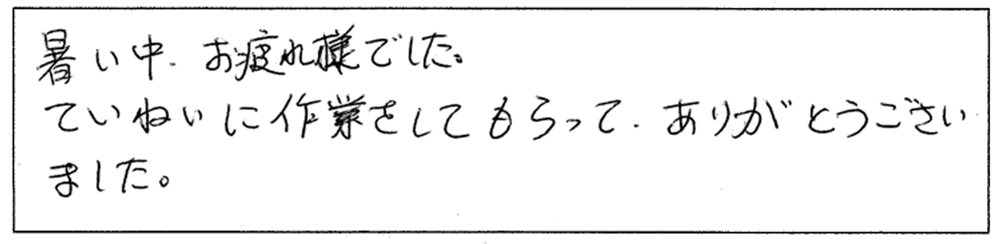 暑い中、お疲れ様でした。
ていねいに作業をしてもらって、ありがとうござい
ました。